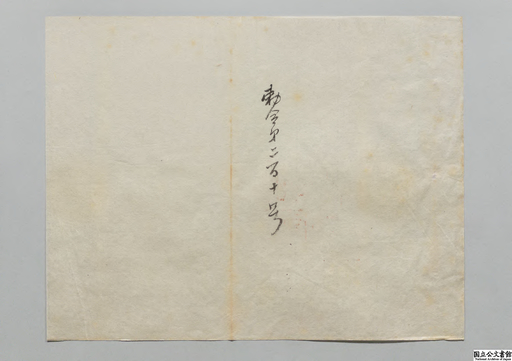 勅令第二百十号
国立公文書館
National Archives of Japan